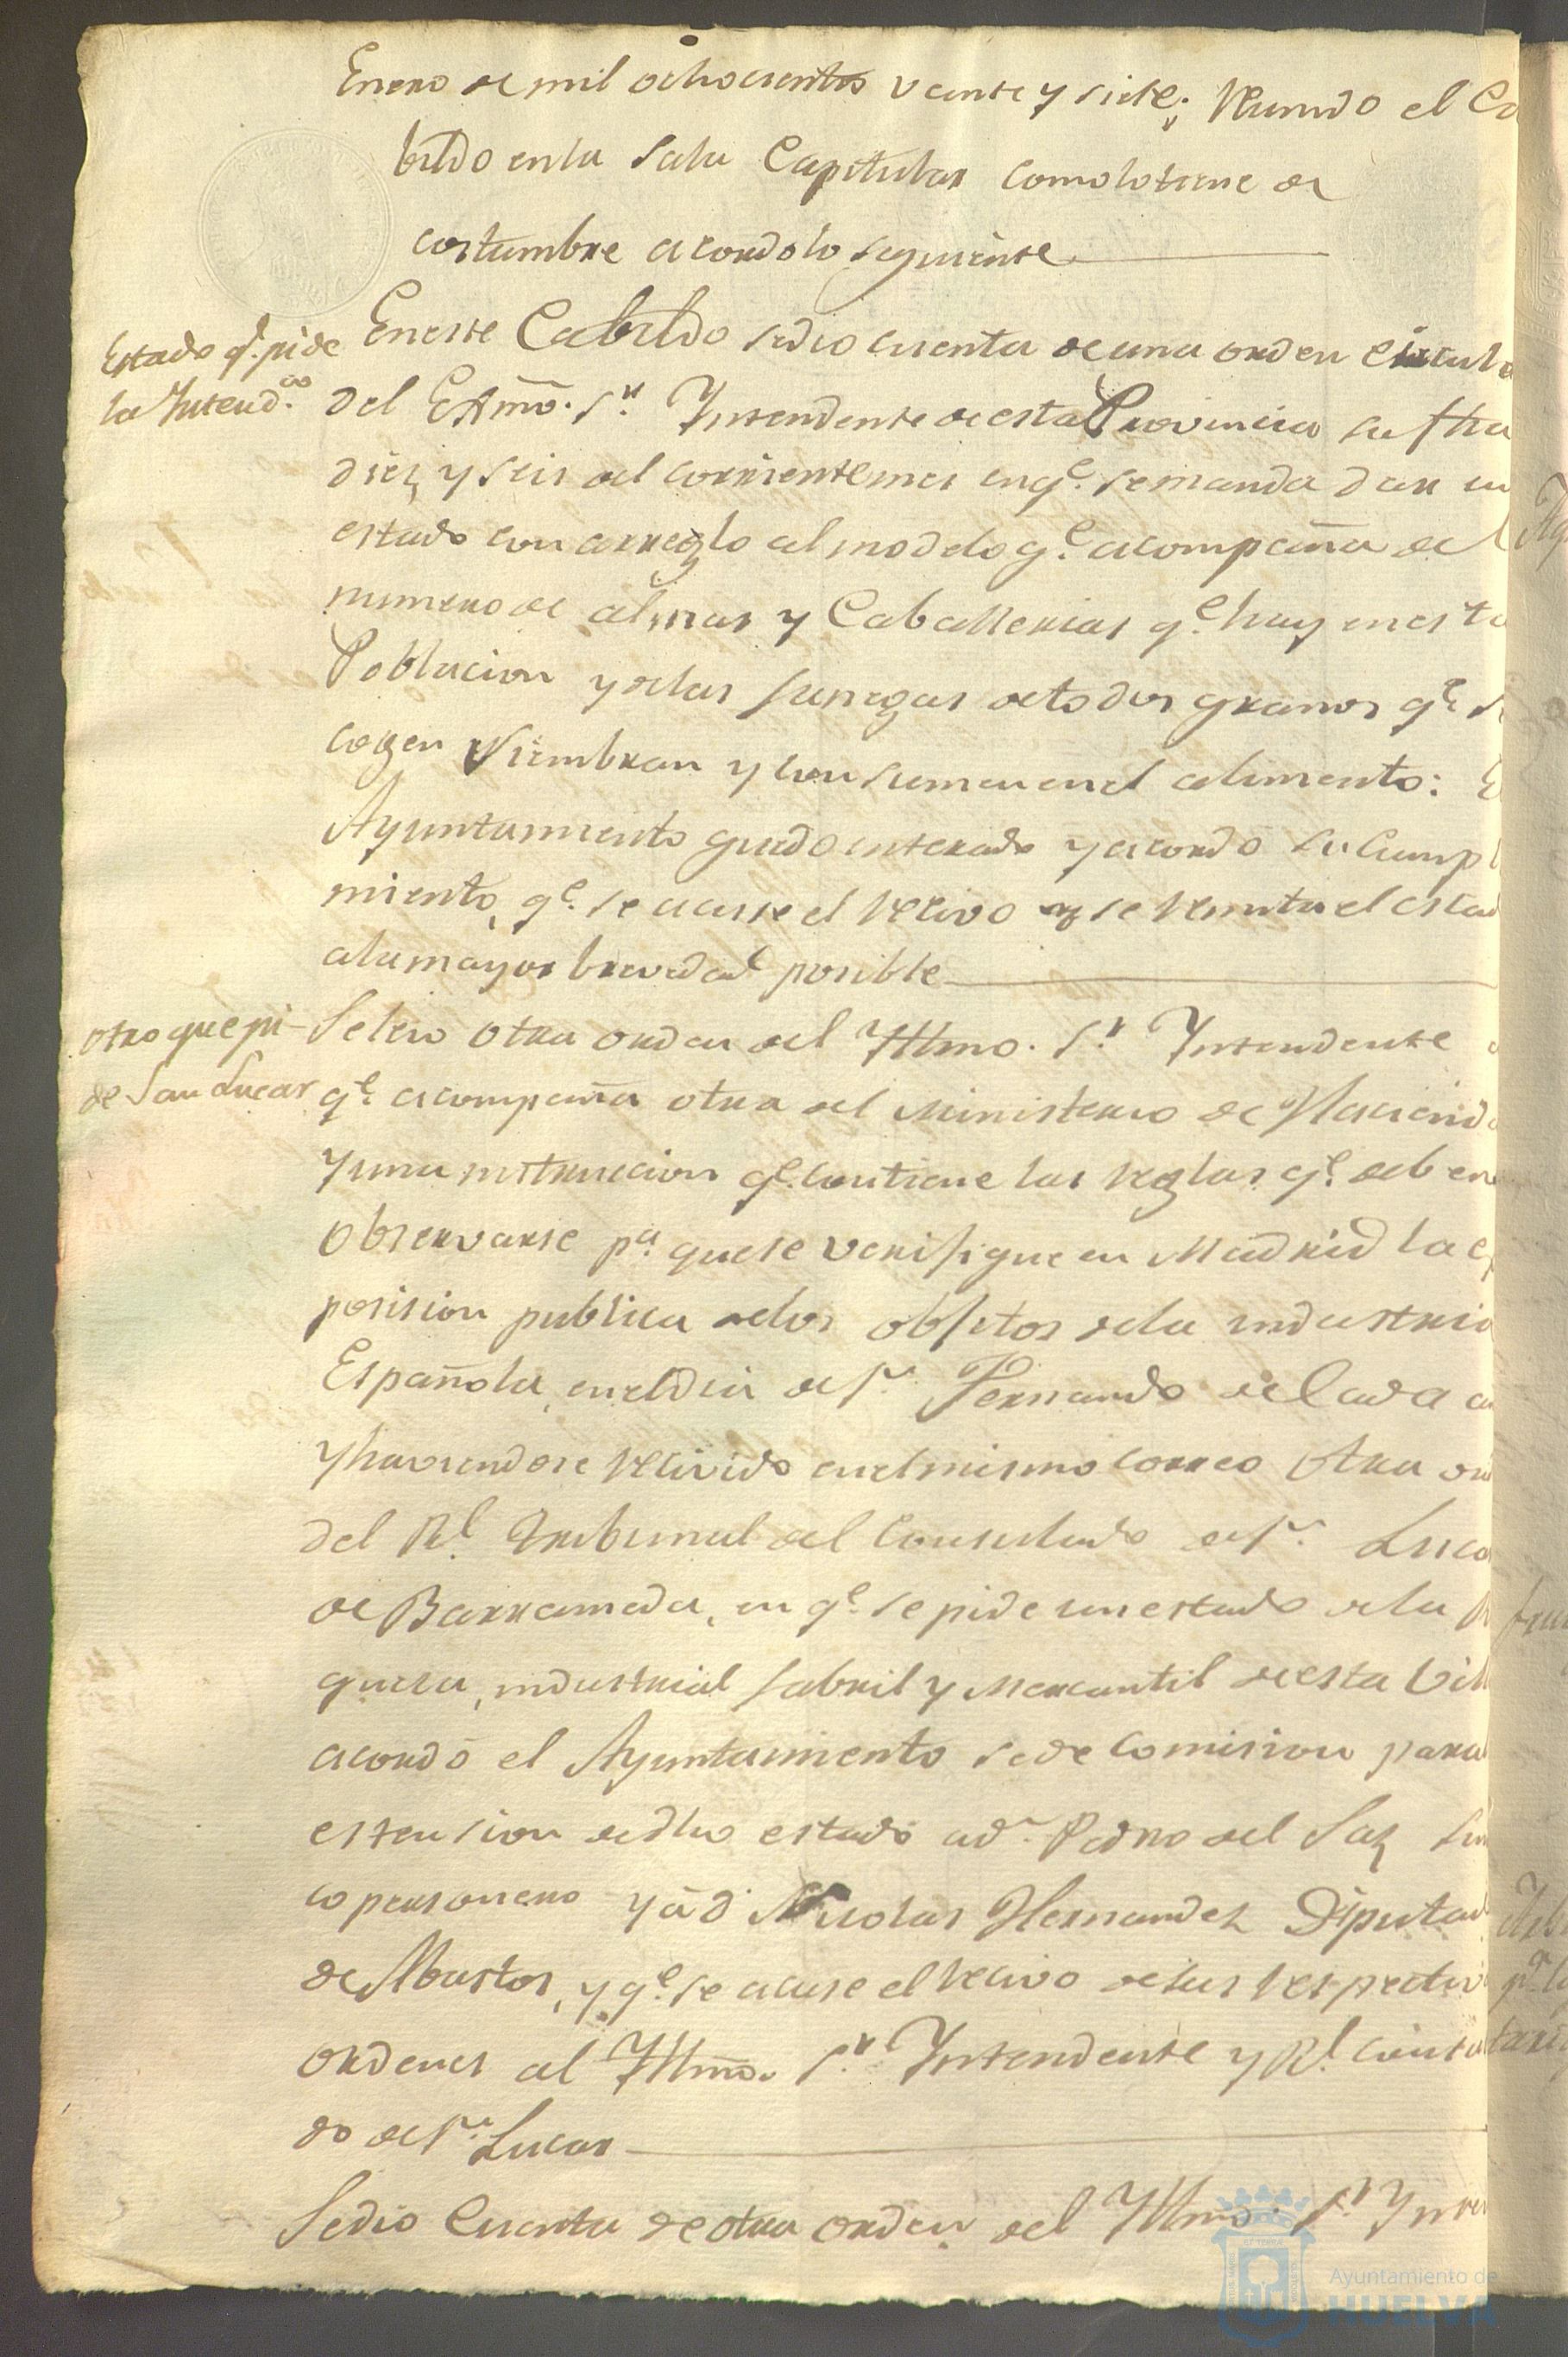 Enero de mil ochocientos veinte y siete; Reunido el Ca
bildo en la Sala Capitular como lo tiene de
costumbre acordo lo siguiente
Estado q.e pide
la Intend.a
En este Cabildo se dio cuenta de una orden circula
del Exmõ. S.r Yntendente de esta Provincia su fha
diez y seis del corriente mes en q.e se manda dar un
estado con arreglo al modelo q.e acompaña del
numero de almas y Caballerias q.e hay en esta
Poblacion y de las fanegas de todos granos q.e se
cogen siembran y consumen en el alimento: El
Ayuntamiento quedo enterado y acordó su cumpli
miento, q.e se acuse el recivo y se remita el estad
a la mayor brevedad posible
otro que pi-
de San Lucar
Se leio otra orden del Yllmo. S.r Yntendente a
q.e acompaña otra del Ministerio de Hacienda
y una instruccion q.e contiene las reglas q.e deben
observarse p.a que se verifique en Madrid la es
posision publica de los obfetos de la industria
Española, en el dia de S.n Fernando de cada añ
y haviendose recivido en el mismo correo otra ord
del R.l Tribunal del Consulado de S.n Luca
de Barrameda, en q.e se pide un estado de la ri
queza, industrial fabril y mercantil de esta Vill
acordó el Ayuntamiento se de comision para
estension de dho estado a d.n Pedro del Saz Sin
co personero y a d.n Nicolas Hernandez Diputad
de Abastos, y q.e se acuse el recivo de sus respectiv
ordenes al Yllmõ. S.r Yntendente y R.l consula
do de S.n Lucar
Se dio Cuenta de otra orden del Yllmõ. S.r Ynten
Ayuntamiento de
HUELVA